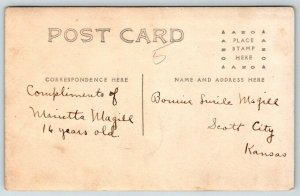 POST CARD
PLACE
STAMP
HERE
5
CORRESPONDENCE HERE
NAME AND ADDRESS HERE
Compliments of
Marietta Magill
14 years old.
Bonnie Magill
Scott City
Kansas